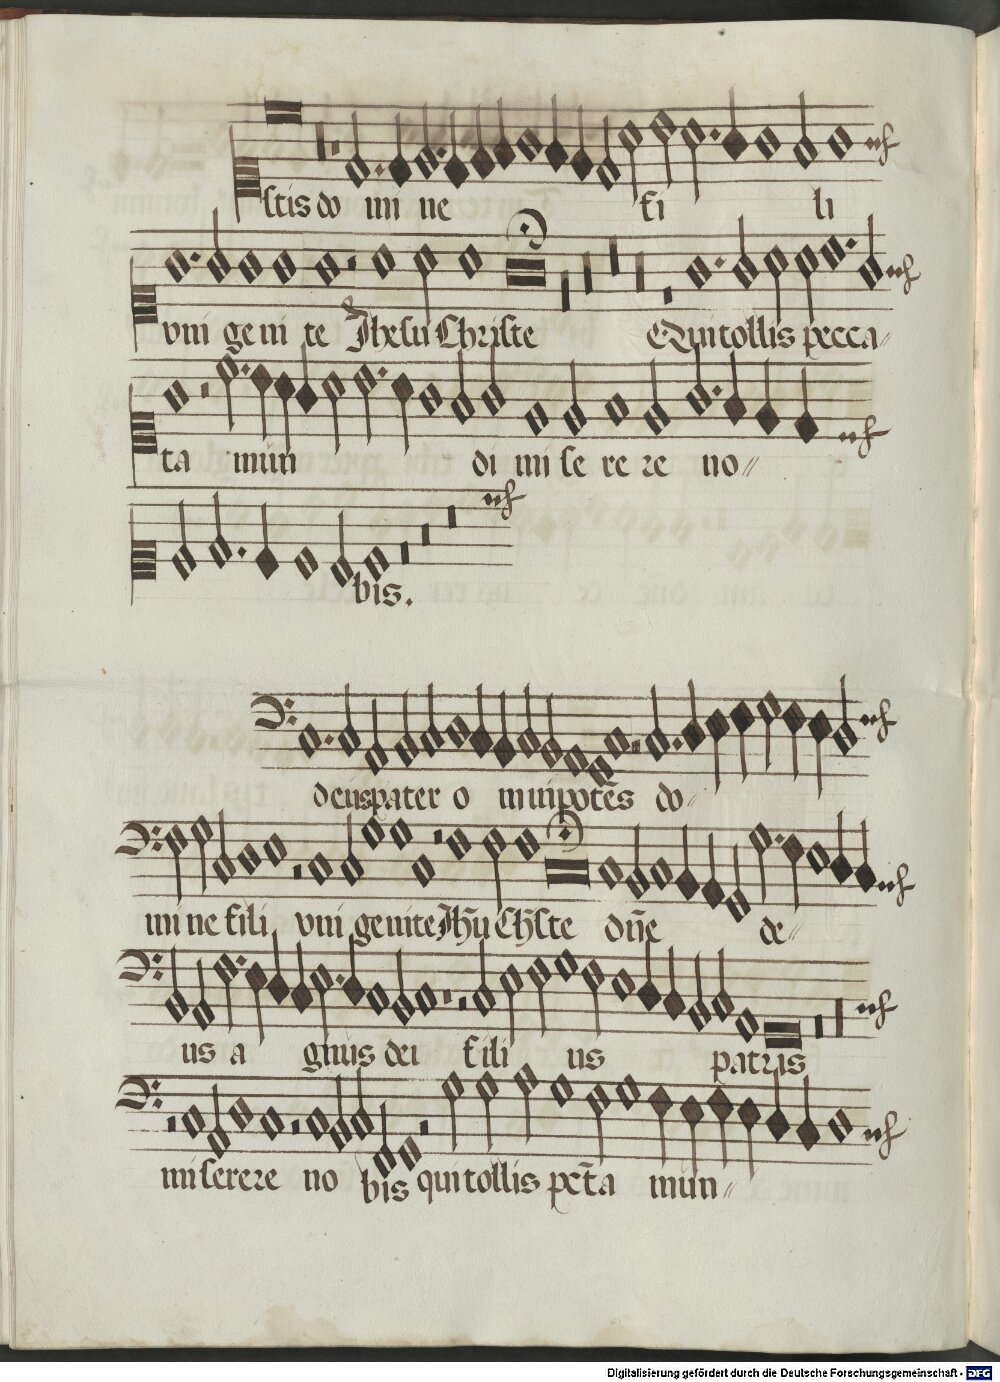 stis do mi ne fi li
vni ge ni te Jhesu Christe Qui tollis pecca
ta mun di mi se re re no
bis.
deus pater o mnipotēs do
mi ne fili vni genite Jhū Chr̄ste dn̄e de
us a gnus dei fili us patris
miserere no bis qui tollis pcc̄ta mun
Digitalisierung gefördert durch die Deutsche Forschungsgemeinschaft - DFG